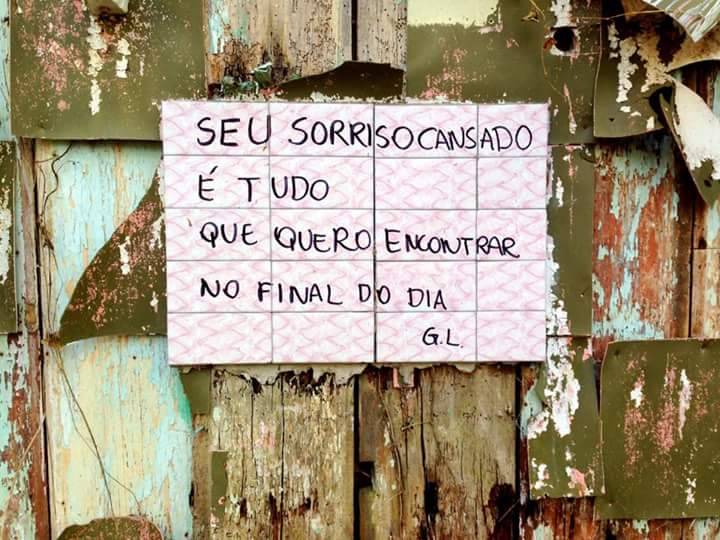 SEU SORRISO CANSADO
É TUDO
QUE QUERO ENCONTRAR
NO FINAL DO DIA
G.L.